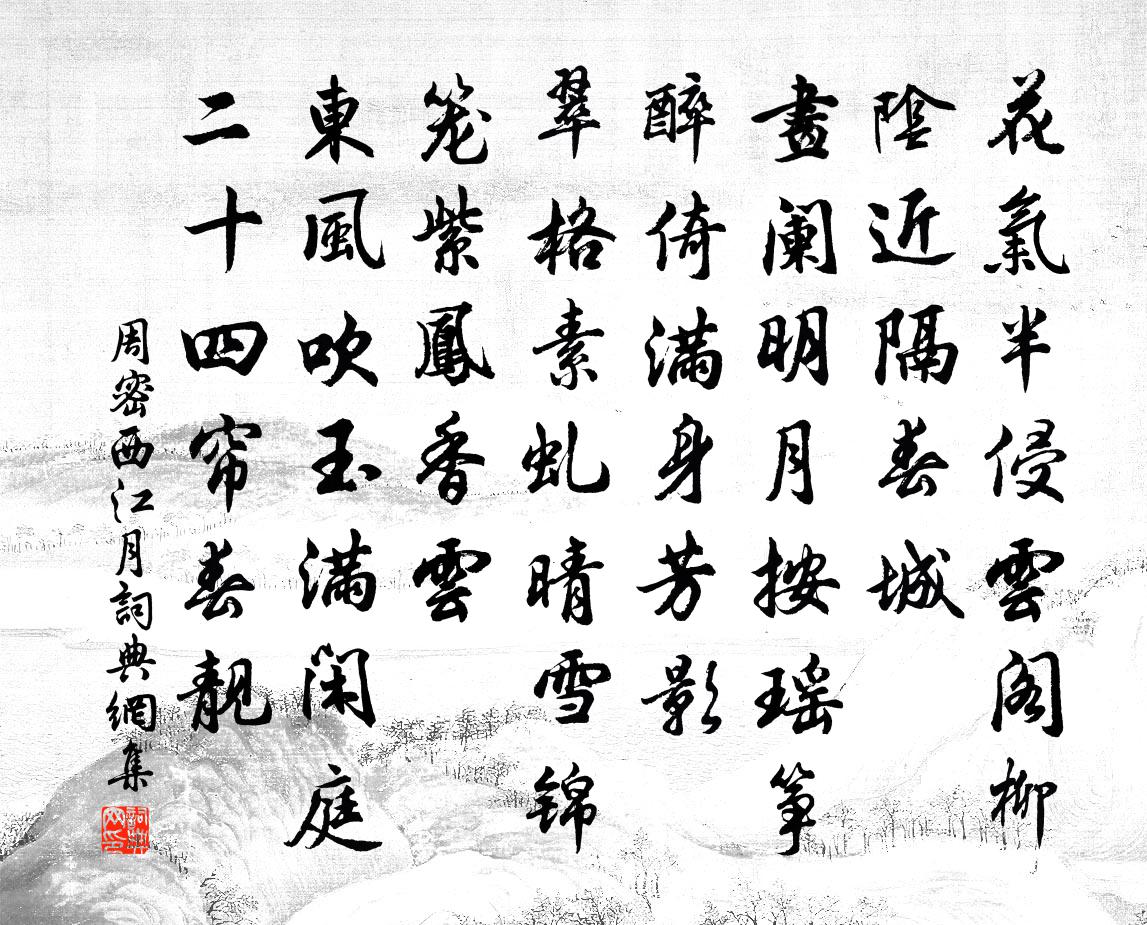 花氣半侵雲閣柳
陰近隔春城
畫闌明月按瑶筝
醉倚滿身芳影
翠格素虬晴雪錦
笼紫鳳香雲
東風吹玉滿闲庭
二十四帘春靚
周密西江月詞典網集
詞典網印